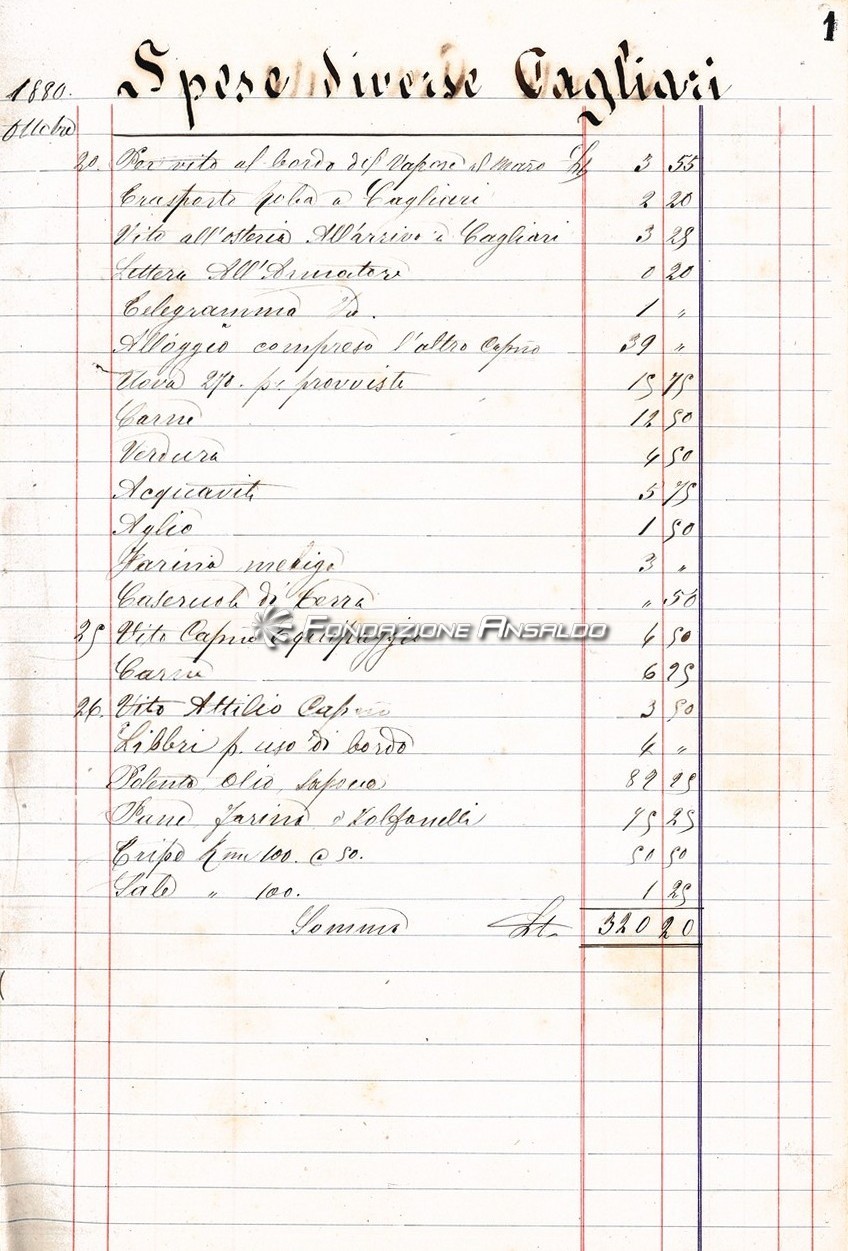 1
Spese diverse Cagliari
1880.
Ottobre
20. Per vito al bordo del Vapore Lt 3 55
Trasporto roba a Cagliari 2 20
Vito all'osteria All'arrivo a Cagliari 3 25
Lettera All'Armatore 0 20
Telegramma 1 "
Alloggio compreso l'altro Capno 39 "
Uova 270. pe provviste 15 75
Carne 12 50
Verdura 4 50
Acquavite 5 75
Aglio 1 50
Farina meliga 3 "
Caseruola di terra " 50
FONDAZIONE ANSALDO
25 Vito Capno Equipaggio 4 50
Carne 6 25
26. Vito Attilio Capno 3 50
Libbri p. uso di bordo 4 "
Polenta, Olio, Sapone 82 25
Pane, Farina e Zolfanelli 75 25
100. @ 50. 50 50
Sale " 100. 1 25
Somma Lt. 320 20